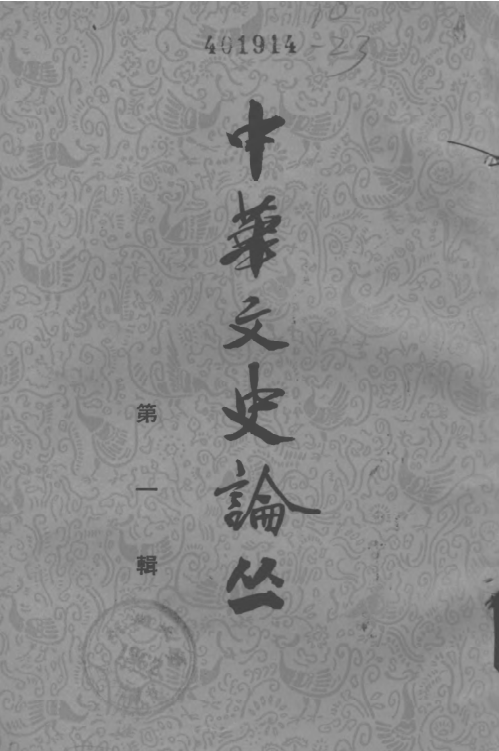 401914-23
中華文史論丛
第一輯